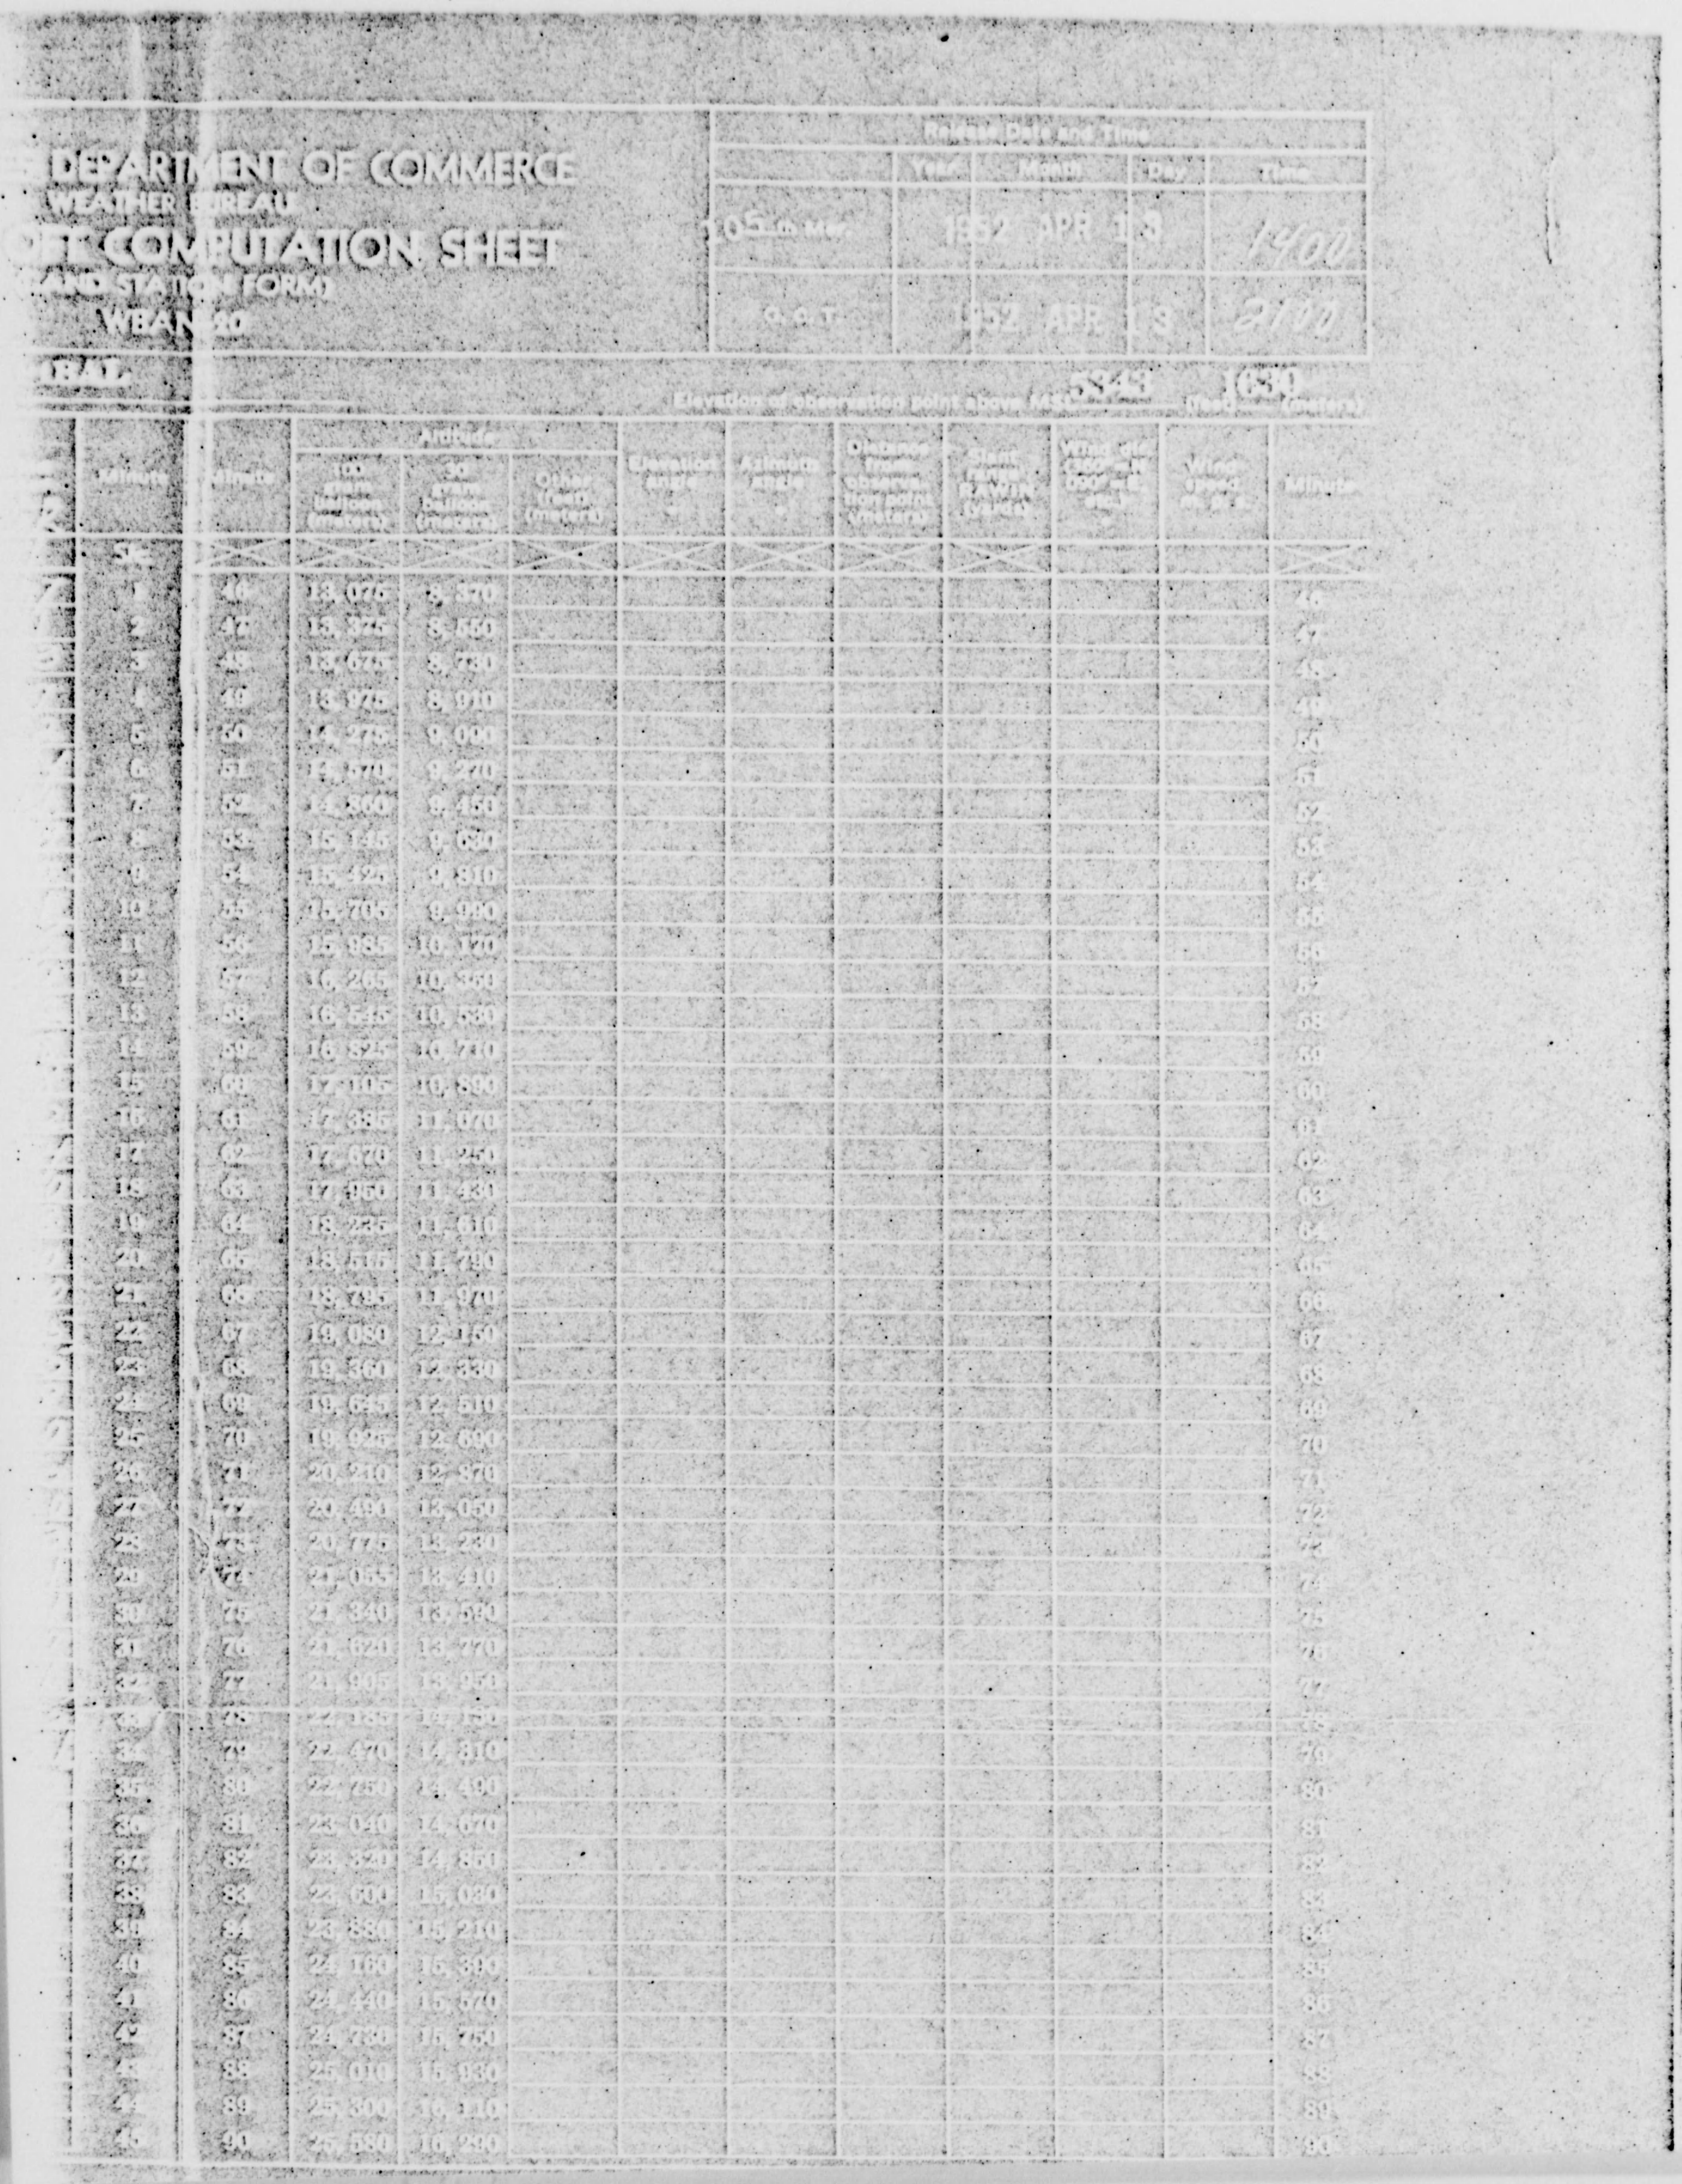 DEPARTMENT OF COMMERCE
WEATHER BUREAU
COMPUTATION SHEET
AND STATION FORM)
WBAN 20
Release Date and Time
Year Month Day Time
105th Mer. 1952 APR 13 1400
G. C. T. 1952 APR 13 2100
Elevation of observation point above MSL 5343 (feet) 1630 (meters)
Altitude
Minute Minute 100 gram balloon (meters) 30 gram balloon (meters) Other (feet) (meters) Elevation angle Azimuth angle Distance from observation point (meters) Wind speed Minute
1 46 13,075 8,370 46
2 47 13,375 8,550 47
3 48 13,675 8,730 48
4 49 13,975 8,910 49
5 50 14,275 9,090 50
6 51 14,570 9,270 51
7 52 14,860 9,450 52
8 53 15,145 9,630 53
9 54 15,425 9,810 54
10 55 15,705 9,990 55
11 56 15,985 10,170 56
12 57 16,265 10,350 57
13 58 16,545 10,530 58
14 59 16,825 10,710 59
15 60 17,105 10,890 60
16 61 17,385 11,070 61
17 62 17,670 11,250 62
18 63 17,950 11,430 63
19 64 18,235 11,610 64
20 65 18,515 11,790 65
21 66 18,795 11,970 66
22 67 19,080 12,150 67
23 68 19,360 12,330 68
24 69 19,645 12,510 69
25 70 19,925 12,690 70
26 71 20,210 12,870 71
27 72 20,490 13,050 72
28 73 20,775 13,230 73
29 74 21,055 13,410 74
30 75 21,340 13,590 75
31 76 21,620 13,770 76
32 77 21,905 13,950 77
33 78 22,185 14,130 78
34 79 22,470 14,310 79
35 80 22,750 14,490 80
36 81 23,040 14,670 81
37 82 23,320 14,850 82
38 83 23,600 15,030 83
39 84 23,880 15,210 84
40 85 24,160 15,390 85
41 86 24,440 15,570 86
42 87 24,730 15,750 87
43 88 25,010 15,930 88
44 89 25,300 16,110 89
45 90 25,580 16,290 90